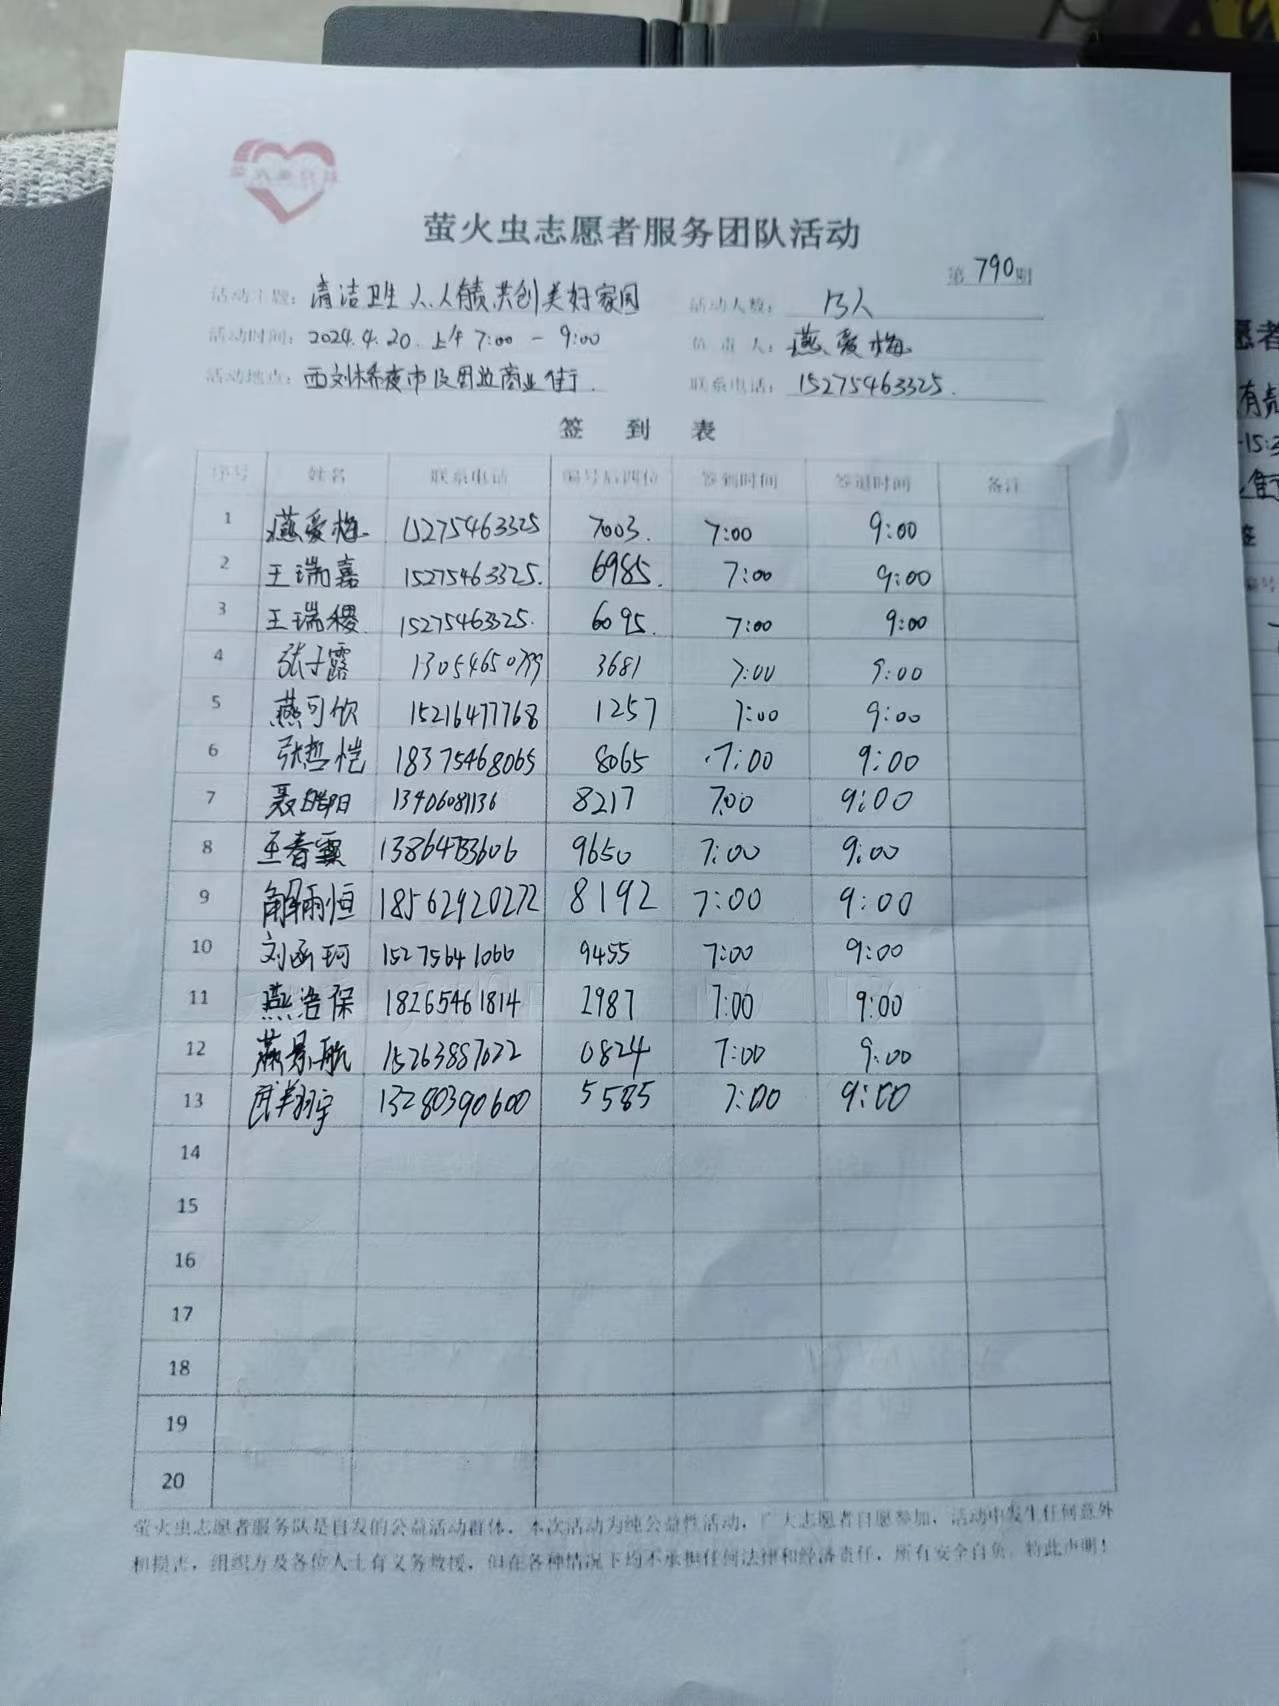 萤火虫志愿者服务团队活动
第790期
活动主题：清洁卫生人人有责共创美好家园 活动人数：13人
活动时间：2024.4.20.上午7:00-9:00 负责人：燕爱梅
活动地点：西刘桥夜市及周边商业街. 联系电话：15275463325.
签到表
序号 姓名 联系电话 编号后四位 签到时间 签退时间 备注
1 燕爱梅 15275463325 7003. 7:00 9:00
2 王瑞嘉 15275463325. 6985. 7:00 9:00
3 王瑞稷 15275463325. 6095. 7:00 9:00
4 张子露 3681 7:00 9:00
5 燕可欣 15216477768 1257 7:00 9:00
6 张哲恺 18375468065 8065 7:00 9:00
7 聂 13406081136 8217 7:00 9:00
8 王春霞 9650 7:00 9:00
9 解雨恒 18562920272 8192 7:00 9:00
10 刘函珂 15275641066 9455 7:00 9:00
11 燕浩保 18265461814 2987 7:00 9:00
12 燕景航 15263887022 0824 7:00 9:00
13 武翔宇 13280390600 5585 7:00 9:00
14
15
16
17
18
19
20
萤火虫志愿者服务队是自发的公益活动群体，本次活动为纯公益性活动，广大志愿者自愿参加，活动中发生任何意外
和损害，组织方及各位人士有义务救援，但在各种情况下均不承担任何法律和经济责任，所有安全自负，特此声明！